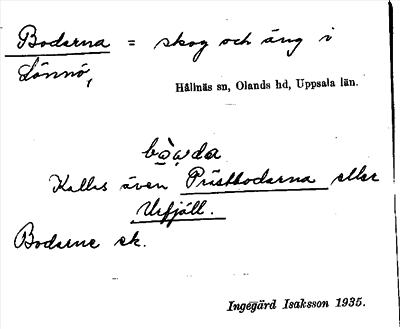 Bodarna = skog och äng i
Lönnö,
Hållnäs sn, Olands hd, Uppsala län.
Kallas även Prästbodarna eller
Bodarne sk.
Ingegärd Isaksson 1935.